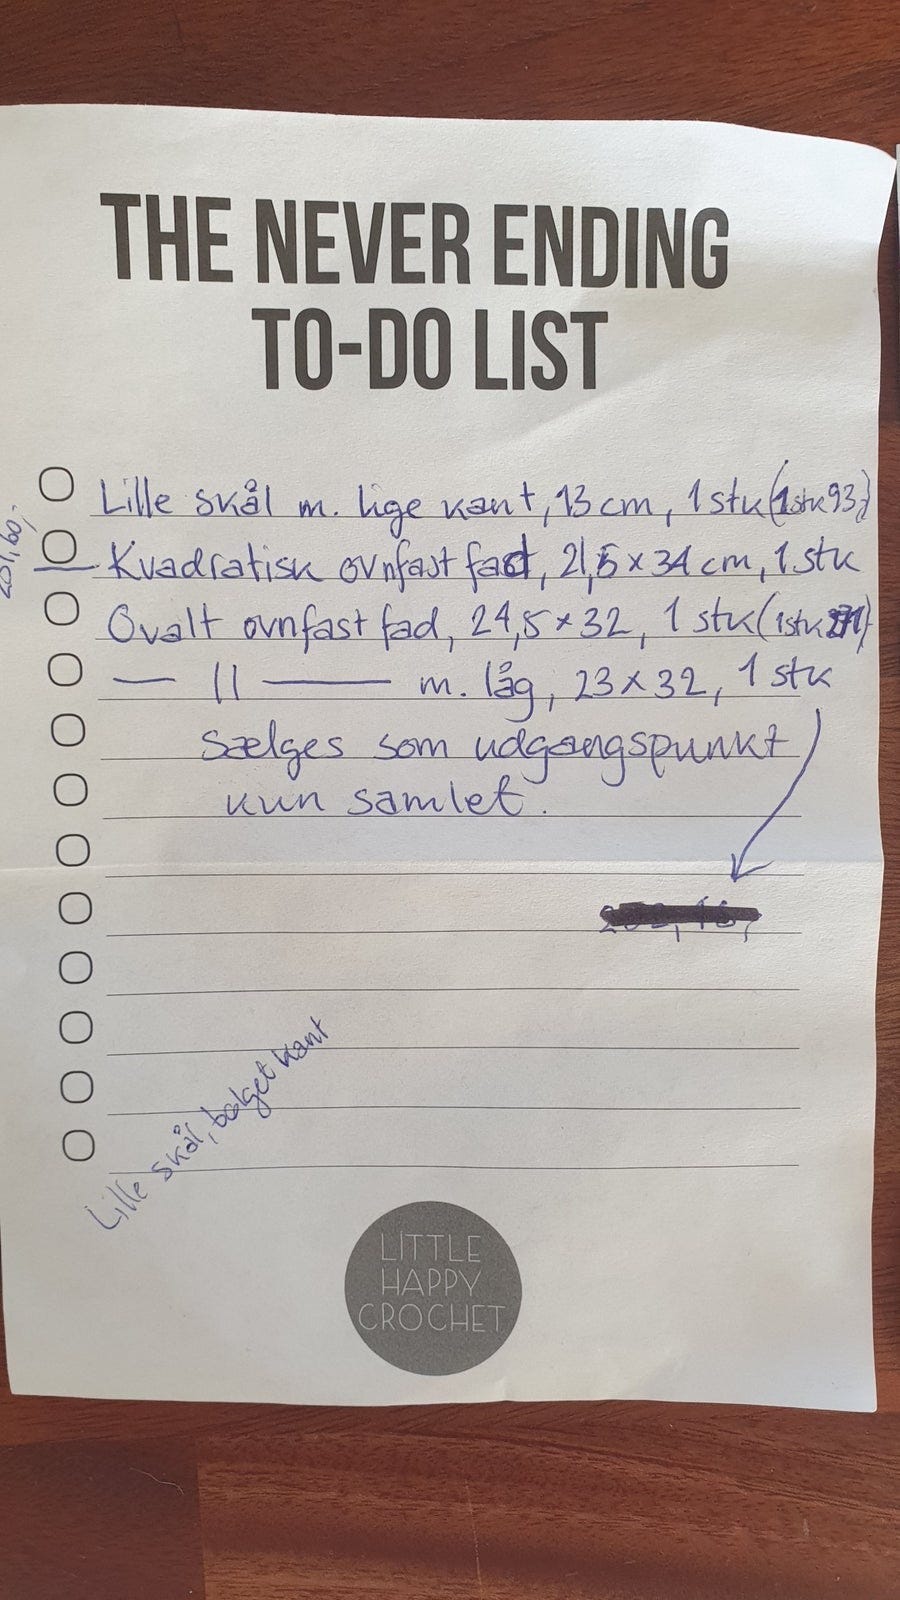 THE NEVER ENDING
TO-DO LIST
Lille skål m. lige kant, 13 cm, 1 stk (1stk 93,)
Kvadratisk ovnfast fad, 21,5 x 34 cm, 1 stk
Ovalt ovnfast fad, 24,5 x 32, 1 stk (1stk
— || — m. låg, 23 x 32, 1 stk
Sælges som udgangspunkt
kun samlet.
Lille skål, bølget kant
LITTLE
HAPPY
CROCHET